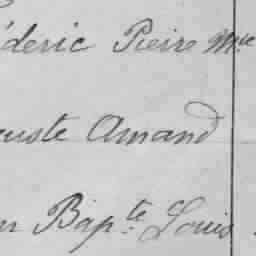 éderic Pierre Mie
uste Amand
n Bap.te Louis